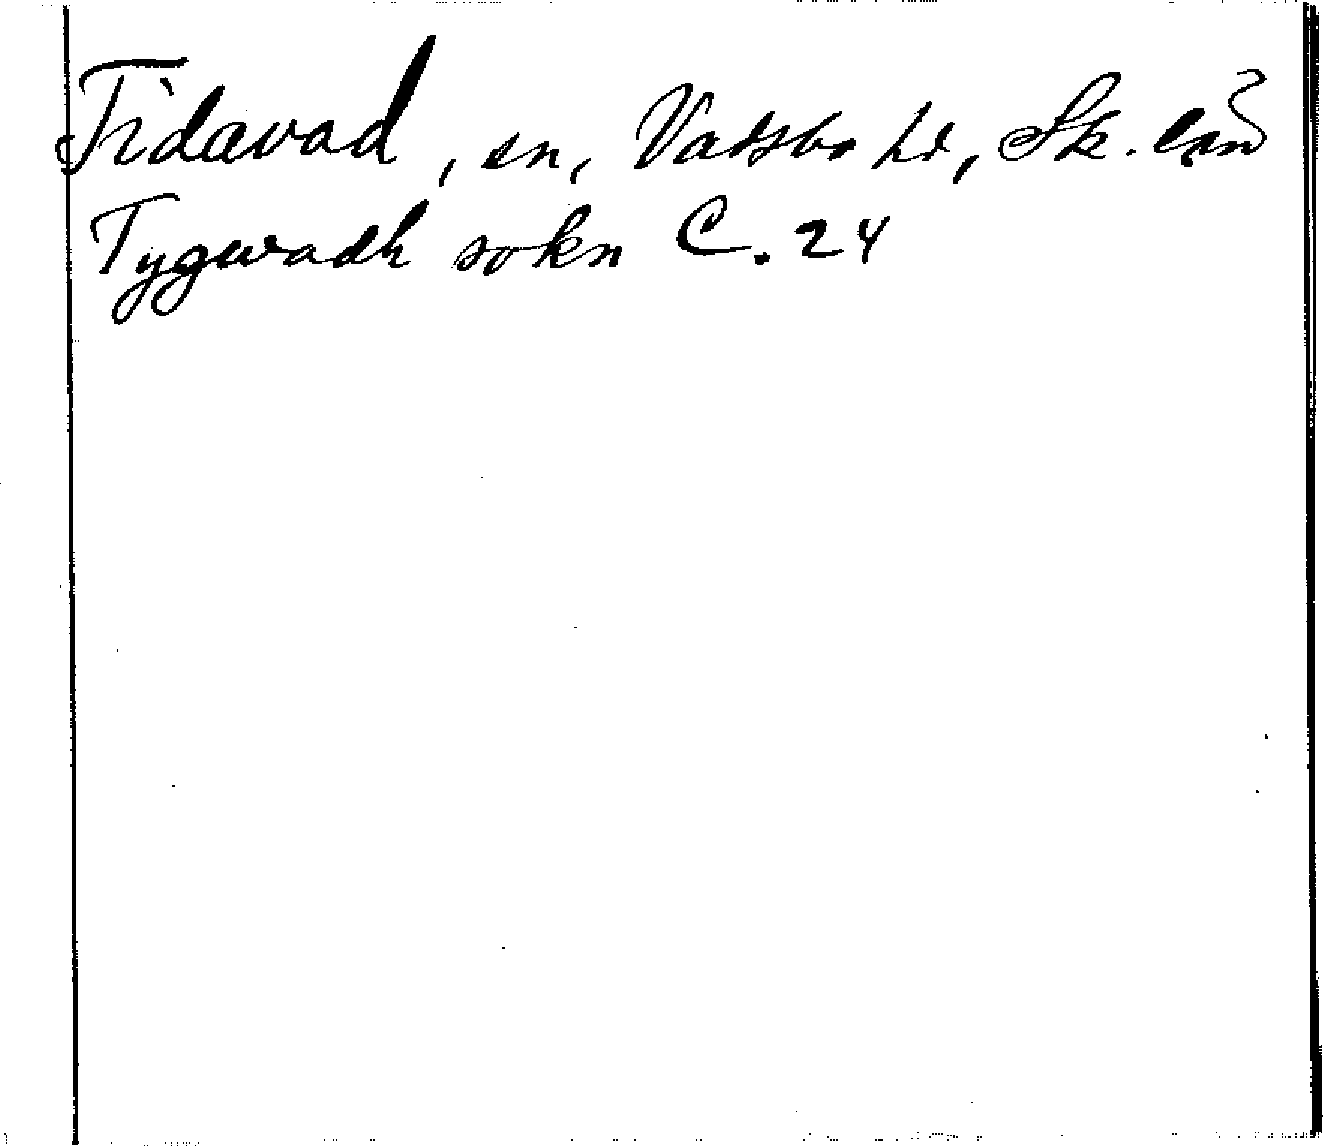 Tidavad, sn, Vadsbo hd, Sk. län
Tygwadh sokn C. 24